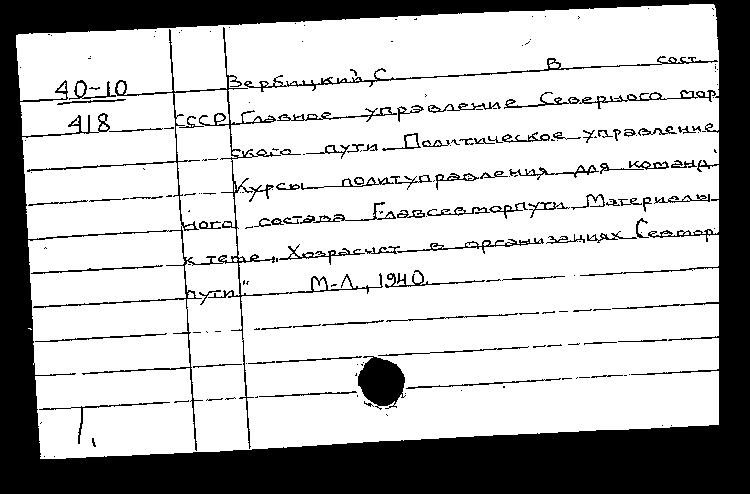 40-10
418
Вербицкий, С. В сост.
СССР. Главное управление Северного мор
ского пути. Политическое управление
Курсы политуправления для команд.
ного состава Главсевморпути. Материалы
к теме „Хозрасчет в организациях Севмор
пути". М-Л., 1940.
1.